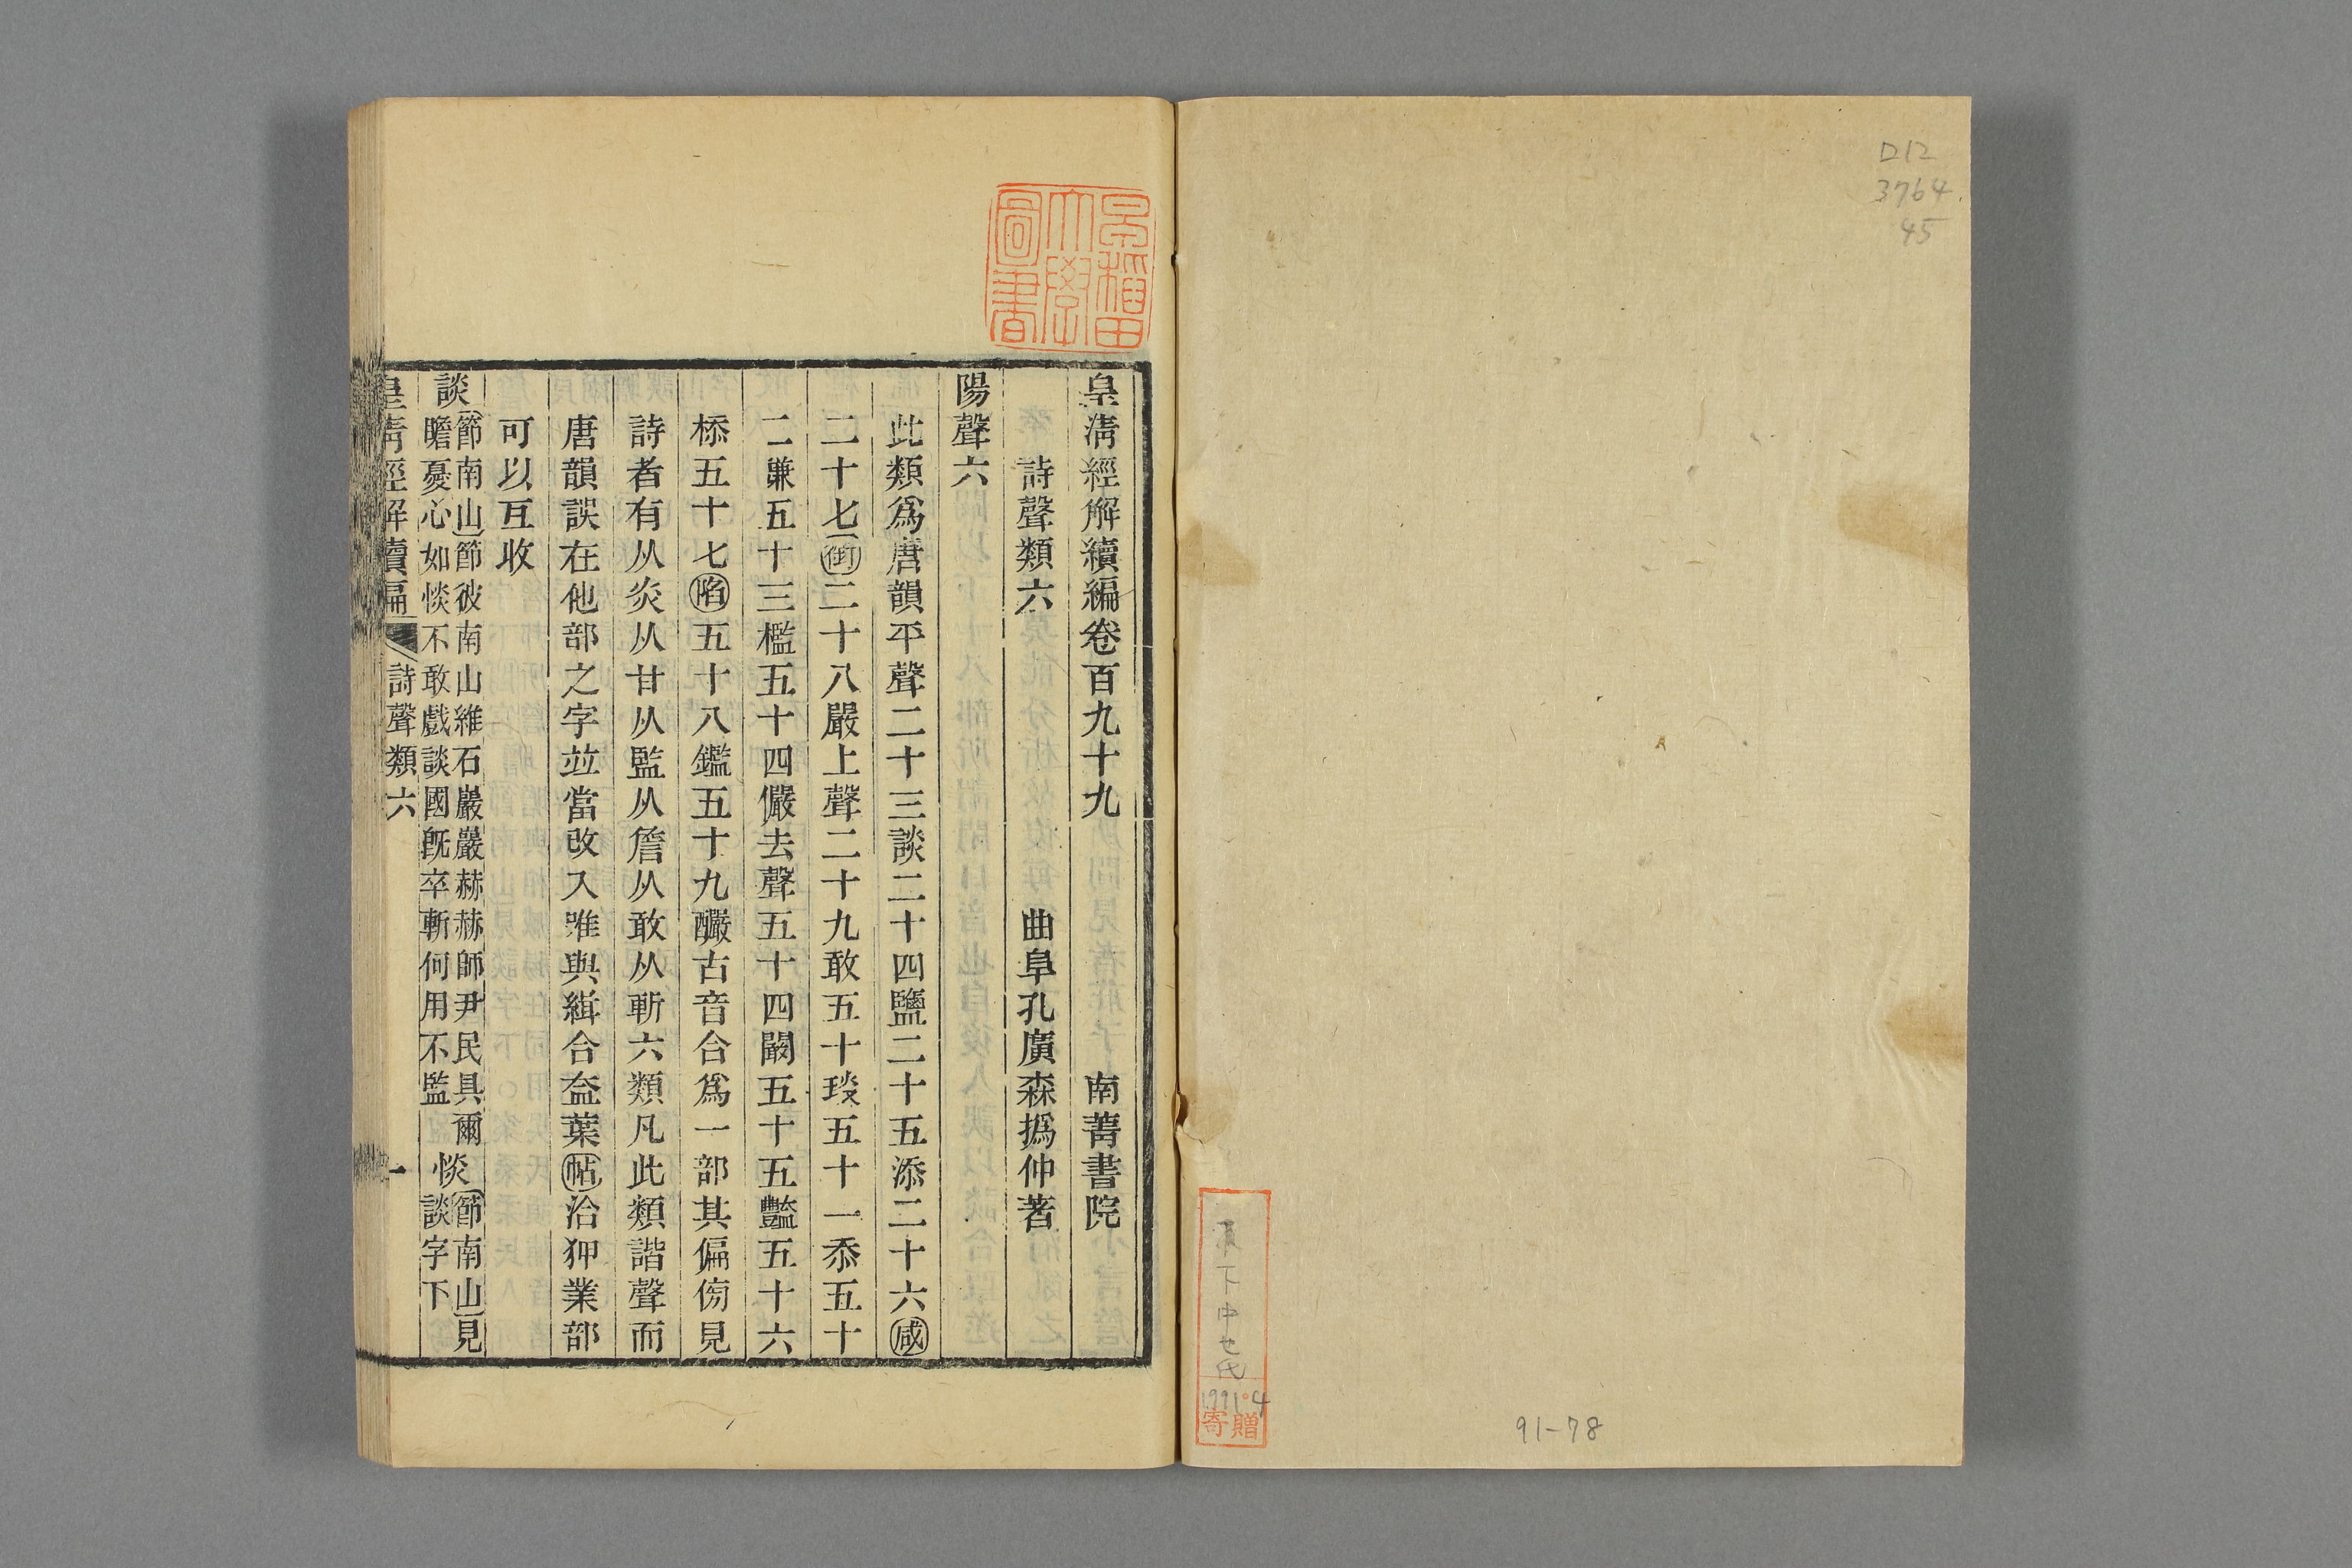 D12
3764
45
91-78
1991.4
寄贈
早稲田大學圖書
皇清經解續編卷百九十九 南菁書院
詩聲類六 曲阜孔廣森撝仲著
陽聲六
此類爲唐韻平聲二十三談二十四鹽二十五添二十六咸
二十七銜二十八嚴上聲二十九敢五十琰五十一忝五十
二豏五十三檻五十四儼去聲五十四闞五十五豔五十六
㮇五十七陷五十八鑑五十九釅古音合爲一部其偏傍見
詩者有从炎从甘从監从詹从敢从斬六類凡此類諧聲而
唐韻誤在他部之字竝當改入唯與緝合盍葉帖洽狎業部
可以互收
談 節南山節彼南山維石巖巖赫赫師尹民具爾
瞻憂心如惔不敢戲談國旣卒斬何用不監
惔 節南山見
談字下
皇清經解續編 詩聲類六 一